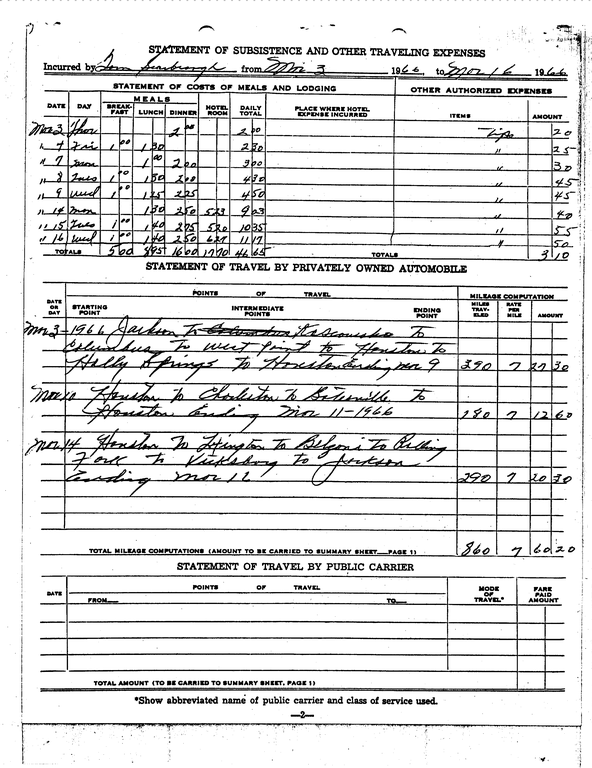 STATEMENT OF SUBSISTENCE AND OTHER TRAVELING EXPENSES
Incurred by Tom Scarbrough from Mar 3 1966 to Mar 16 1966
STATEMENT OF COSTS OF MEALS AND LODGING OTHER AUTHORIZED EXPENSES
DATE DAY MEALS BREAKFAST LUNCH DINNER HOTEL ROOM DAILY TOTAL PLACE WHERE HOTEL EXPENSE INCURRED ITEMS AMOUNT
Mar 3 Thur 2 00 2 00 Tips 20
" 4 Fri 1 00 1 30 2 30 " 25
" 7 Mon 1 00 2 00 3 00 " 30
" 8 Tues 1 00 1 30 2 00 4 30 " 45
" 9 Wed 1 00 1 25 2 25 4 50 " 45
" 14 Mon 1 30 2 50 5 23 9 03 " 40
" 15 Tues 1 00 1 40 2 75 5 20 10 35 " 55
" 16 Wed 1 00 1 40 2 50 6 27 11 17 " 50
TOTALS 5 00 8 95 16 00 17 70 46 65 TOTALS 3 10
STATEMENT OF TRAVEL BY PRIVATELY OWNED AUTOMOBILE
DATE OR DAY POINTS OF TRAVEL MILEAGE COMPUTATION
STARTING POINT INTERMEDIATE POINTS ENDING POINT MILES TRAVELED RATE PER MILE AMOUNT
Mar 3-1966 Jackson To Columbus Kosciusko to
Columbus to West Point to Houston to
Holly Springs to Houston Ending Mar 9 390 7 27 30
Mar 10 Houston to Charleston to Batesville to
Houston Ending Mar 11-1966 180 7 12 60
Mar 14 Houston To Lexington to Belzoni to Rolling
Fork to Vicksburg to Jackson
Ending Mar 16 290 7 20 30
TOTAL MILEAGE COMPUTATIONS (AMOUNT TO BE CARRIED TO SUMMARY SHEET—PAGE 1) 860 7 60 20
STATEMENT OF TRAVEL BY PUBLIC CARRIER
DATE POINTS OF TRAVEL MODE OF TRAVEL* FARE PAID AMOUNT
FROM— TO—
TOTAL AMOUNT (TO BE CARRIED TO SUMMARY SHEET, PAGE 1)
*Show abbreviated name of public carrier and class of service used.
—2—